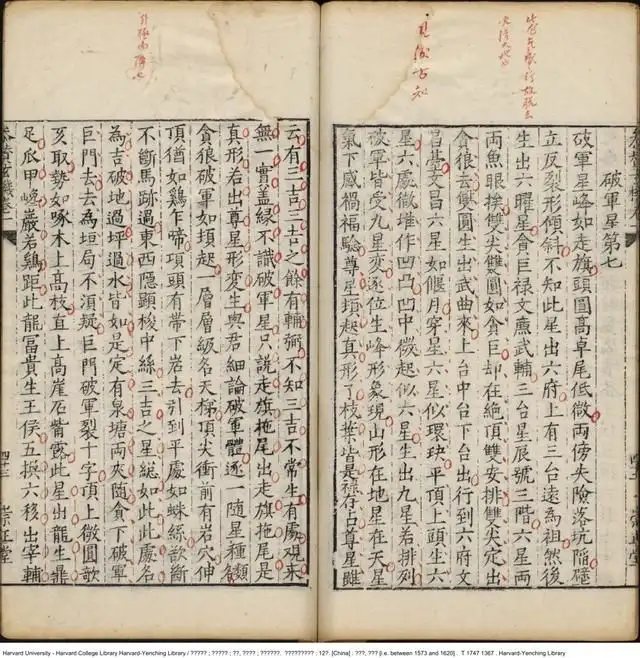 破軍星第七
破軍星峰如走旗頭圓高卓尾低微兩傍失險落坑陷壁
立反裂形傾斜不知此星出六府上有三台遠為祖然後
生出六曜星貪巨祿文廉武輔三台星辰號三階六星兩
兩魚眼挨雙尖雙圓如貪巨却在絕頂雙安排雙尖定出
貪狼去雙圓生出武曲來上台中台下台出行到六府文
昌臺文昌六星如偃月穿星六星似環玦平頂上頭生六
星六處微堆作凹凸凹中微起似六星生出九星若排列
破軍皆受九星變逐位生峰形象現山形在地星在天星
氣下感禍福驗尊星頃起真形了枝葉皆是祿存占尊星雖
云有三吉三吉之餘有輔弼不知三吉不常生有處觀來
無一實蓋緣不識破軍星只說走旗拖尾出走旗拖尾是
真形若出尊星形變生與君細論破軍體逐一隨星種類名
貪狼破軍如頃起一層層級名天梯頂尖衝前有岩穴伸
頂猶如雞乍啼頂頭有帶下岩去引到平處如蛛絲欲斷
不斷馬跡過東西隱顯梭中絲三吉之星總如此此處名
為吉破地過坪過水皆如是定有泉塘兩夾隨貪下破軍
巨門去去為垣局不須疑巨門破軍裂十字頂上微圓欹
側取勢如啄木上高枝直上高崖石觜露此星出龍生鼎
足爪甲巉巖若雞距此龍富貴生王侯五換六移出宰輔
四十三
崇正堂
Harvard University - Harvard College Library Harvard-Yenching Library / ????? ; ????? ; ??, ???? ; ??????. ????????? : 12?. [China] : ???, ??? [i.e. between 1573 and 1620] . T 1747 1367 . Harvard-Yenching Library